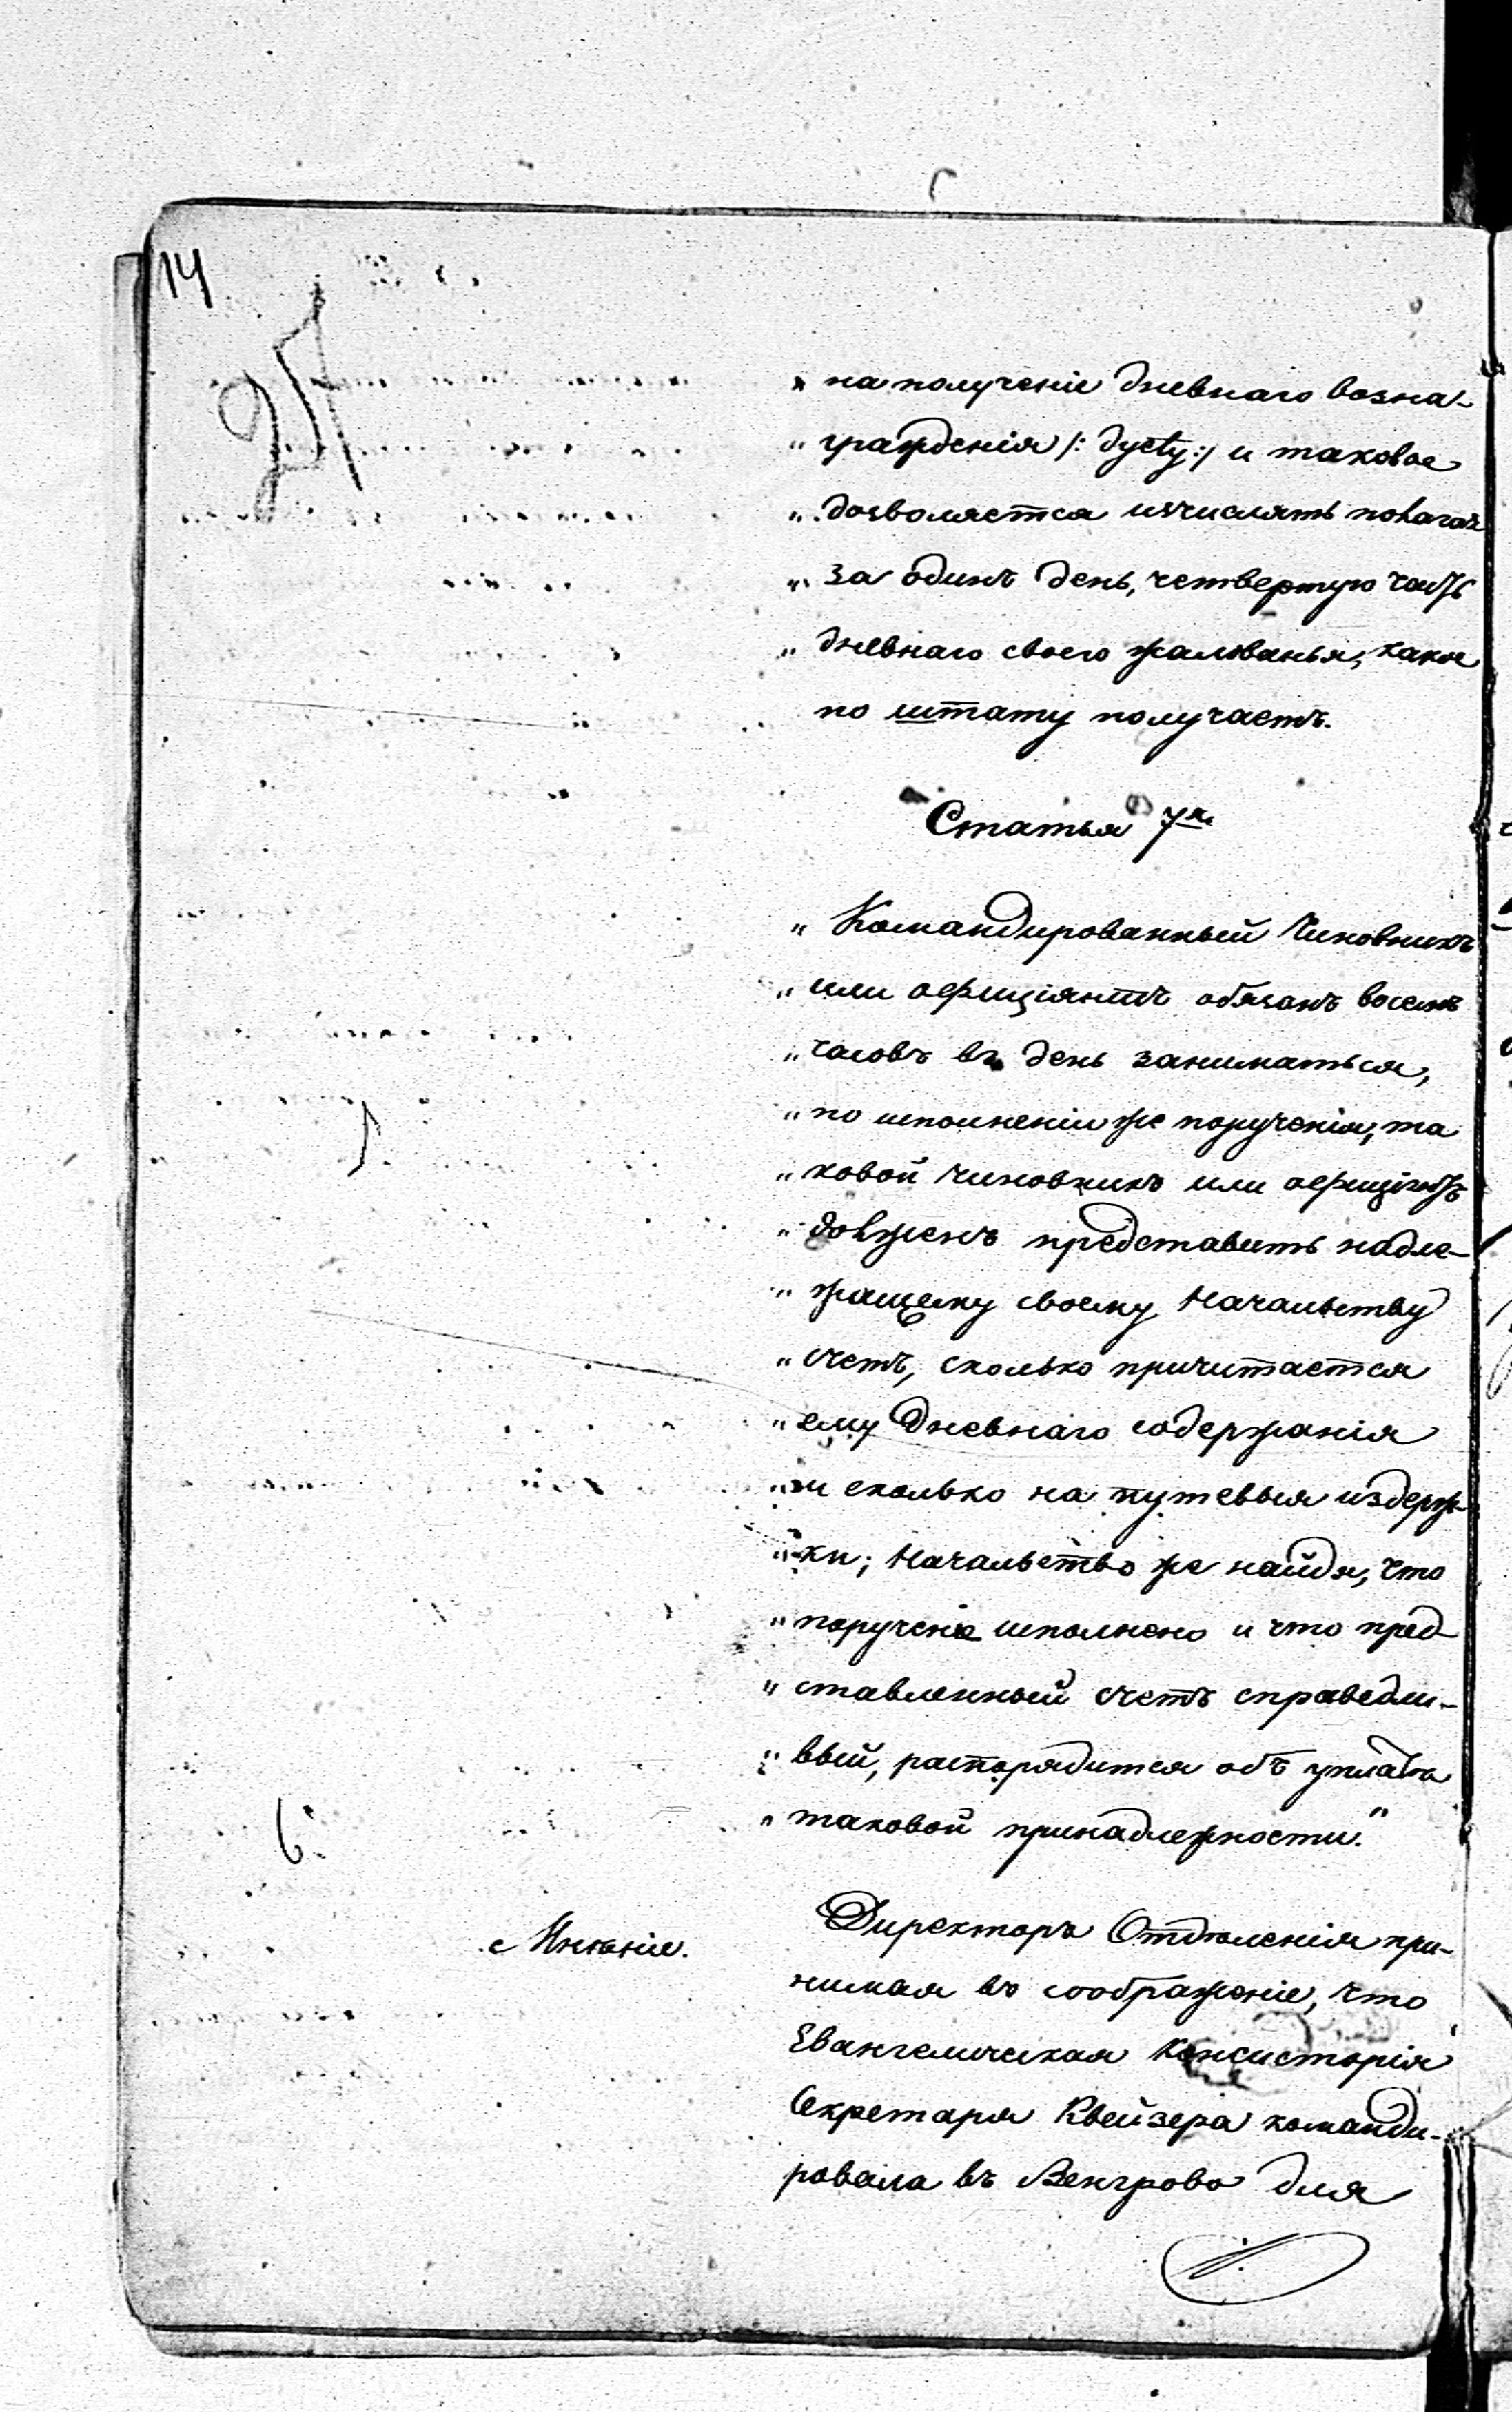 14
25
„ на полученіе дневнаго возна-
„ гражденія /: dyety :/ и таковое
„ дозволяется изчислять полагая
„ за одинъ день, четвертую часть
„ дневнаго своего жалованья, какое
по штату получаетъ.
Статья 7я.
„ Командированный Чиновникъ
„ или офиціянтъ обязанъ восемь
„ часовъ въ день заниматься,
„ по исполненіи же порученія, та
„ ковой чиновникъ или офиціянтъ
„ долженъ представить надле-
„ жащему своему Начальству
„ счетъ, сколько причитается
„ ему дневнаго содержанія
„ и сколько на путевыя издерж-
„ ки; Начальство же найдя, что
„ порученіе исполнено и что пред-
„ ставленный счетъ справедли-
„ вый, распорядится объ уплатѣ
„ таковой принадлежности.“
6.
Мнѣніе.
Директоръ Отдѣленія при-
нимая въ соображеніе, что
Евангелическая Консисторія
Секретаря Квейзера команди-
ровала въ Венгрово для